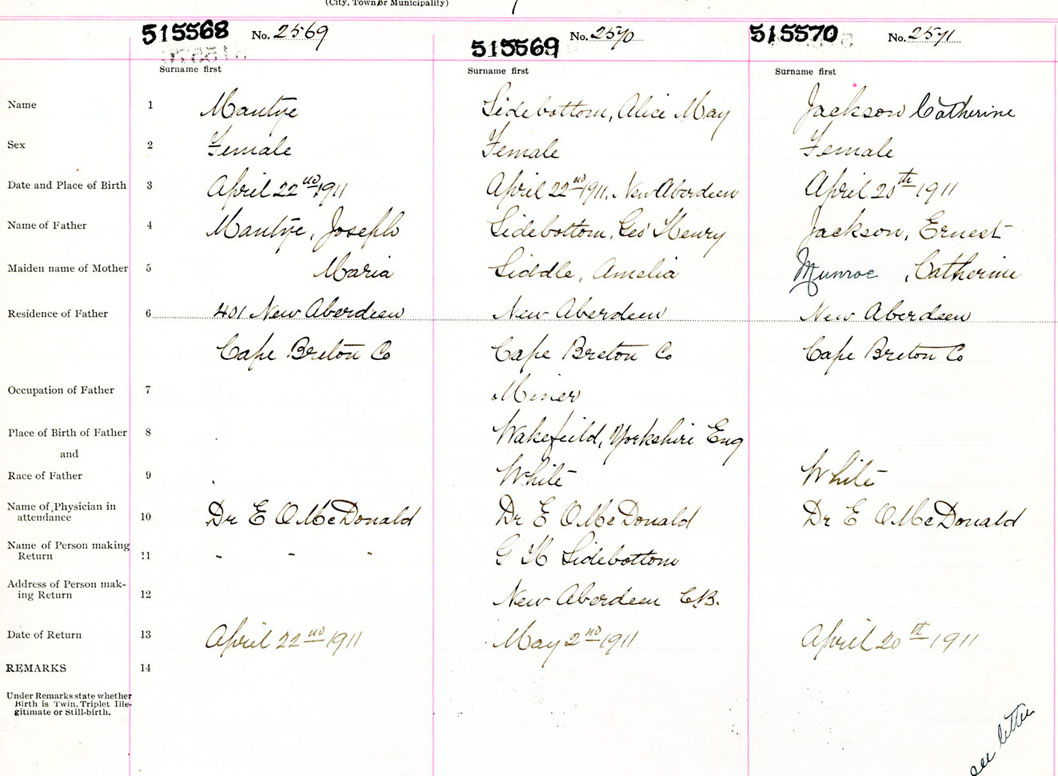 (City, Town or Municipality)
515568 No. 2569 515569 No. 2570 515570 No. 2571
Surname first Surname first Surname first
Name 1 Mantye Sidebottom, Alice May Jackson Catherine
Sex 2 Female Female Female
Date and Place of Birth 3 April 22nd 1911 April 22nd 1911, New Aberdeen April 20th 1911
Name of Father 4 Mantye, Joseph Sidebottom, Geo Henry Jackson, Ernest
Maiden name of Mother 5 Maria Siddle, Amelia Munroe, Catherine
Residence of Father 6 401 New Aberdeen New Aberdeen New Aberdeen
Cape Breton Co Cape Breton Co Cape Breton Co
Occupation of Father 7 Miner
Place of Birth of Father 8 Wakefeild, Yorkshire Eng
and
Race of Father 9 White White
Name of Physician in
attendance 10 Dr E O McDonald Dr E O McDonald Dr E O McDonald
Name of Person making
Return 11 - - - G H Sidebottom
Address of Person mak-
ing Return 12 New Aberdeen C.B.
Date of Return 13 April 22nd 1911 May 2nd 1911 April 20th 1911
REMARKS 14
Under Remarks state whether
Birth is Twin, Triplet Ille-
gitimate or Still-birth.
see letter